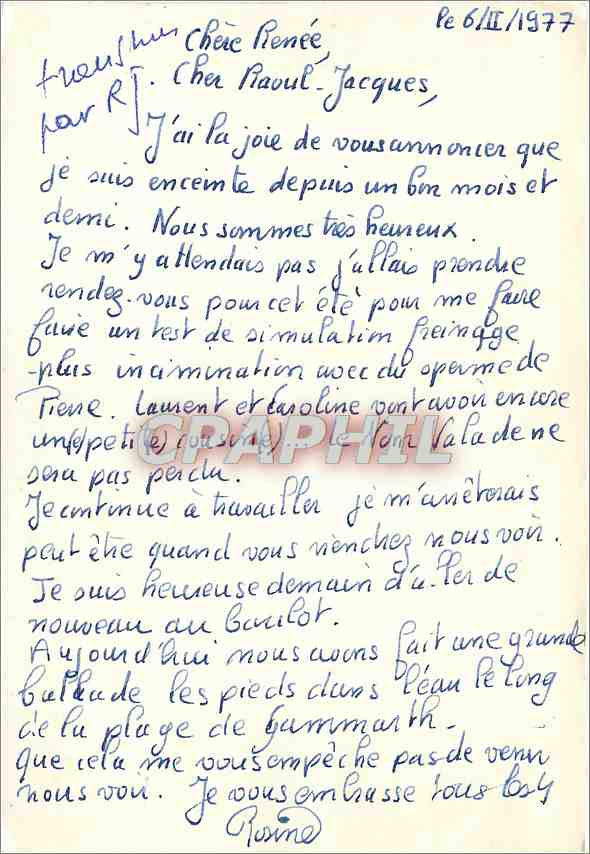 le 6/II/1977
transmis
par RJ.
Chère Renée,
Cher Raoul-Jacques,
J'ai la joie de vous annoncer que
je suis enceinte depuis un bon mois et
demi. Nous sommes très heureux.
Je m'y attendais pas j'allais prendre
rendez-vous pour cet été pour me faire
faire un test de simulation freinage
-plus incimination avec du sperme de
Pierre. Laurent et Caroline vont avoir encore
un(e) petit(e) cousin(e)... le Nom Valade ne
sera pas perdu.
Je continue à travailler je m'arrêterais
peut être quand vous viendrez nous voir.
Je suis heureuse demain d'aller de
nouveau au boulot.
Aujourd'hui nous avons fait une grande
ballade les pieds dans l'eau le long
de la plage de Gammarth-
que cela ne vous empêche pas de venir
nous voir. Je vous embrasse tous les 4
Rosine
GRAPHIL